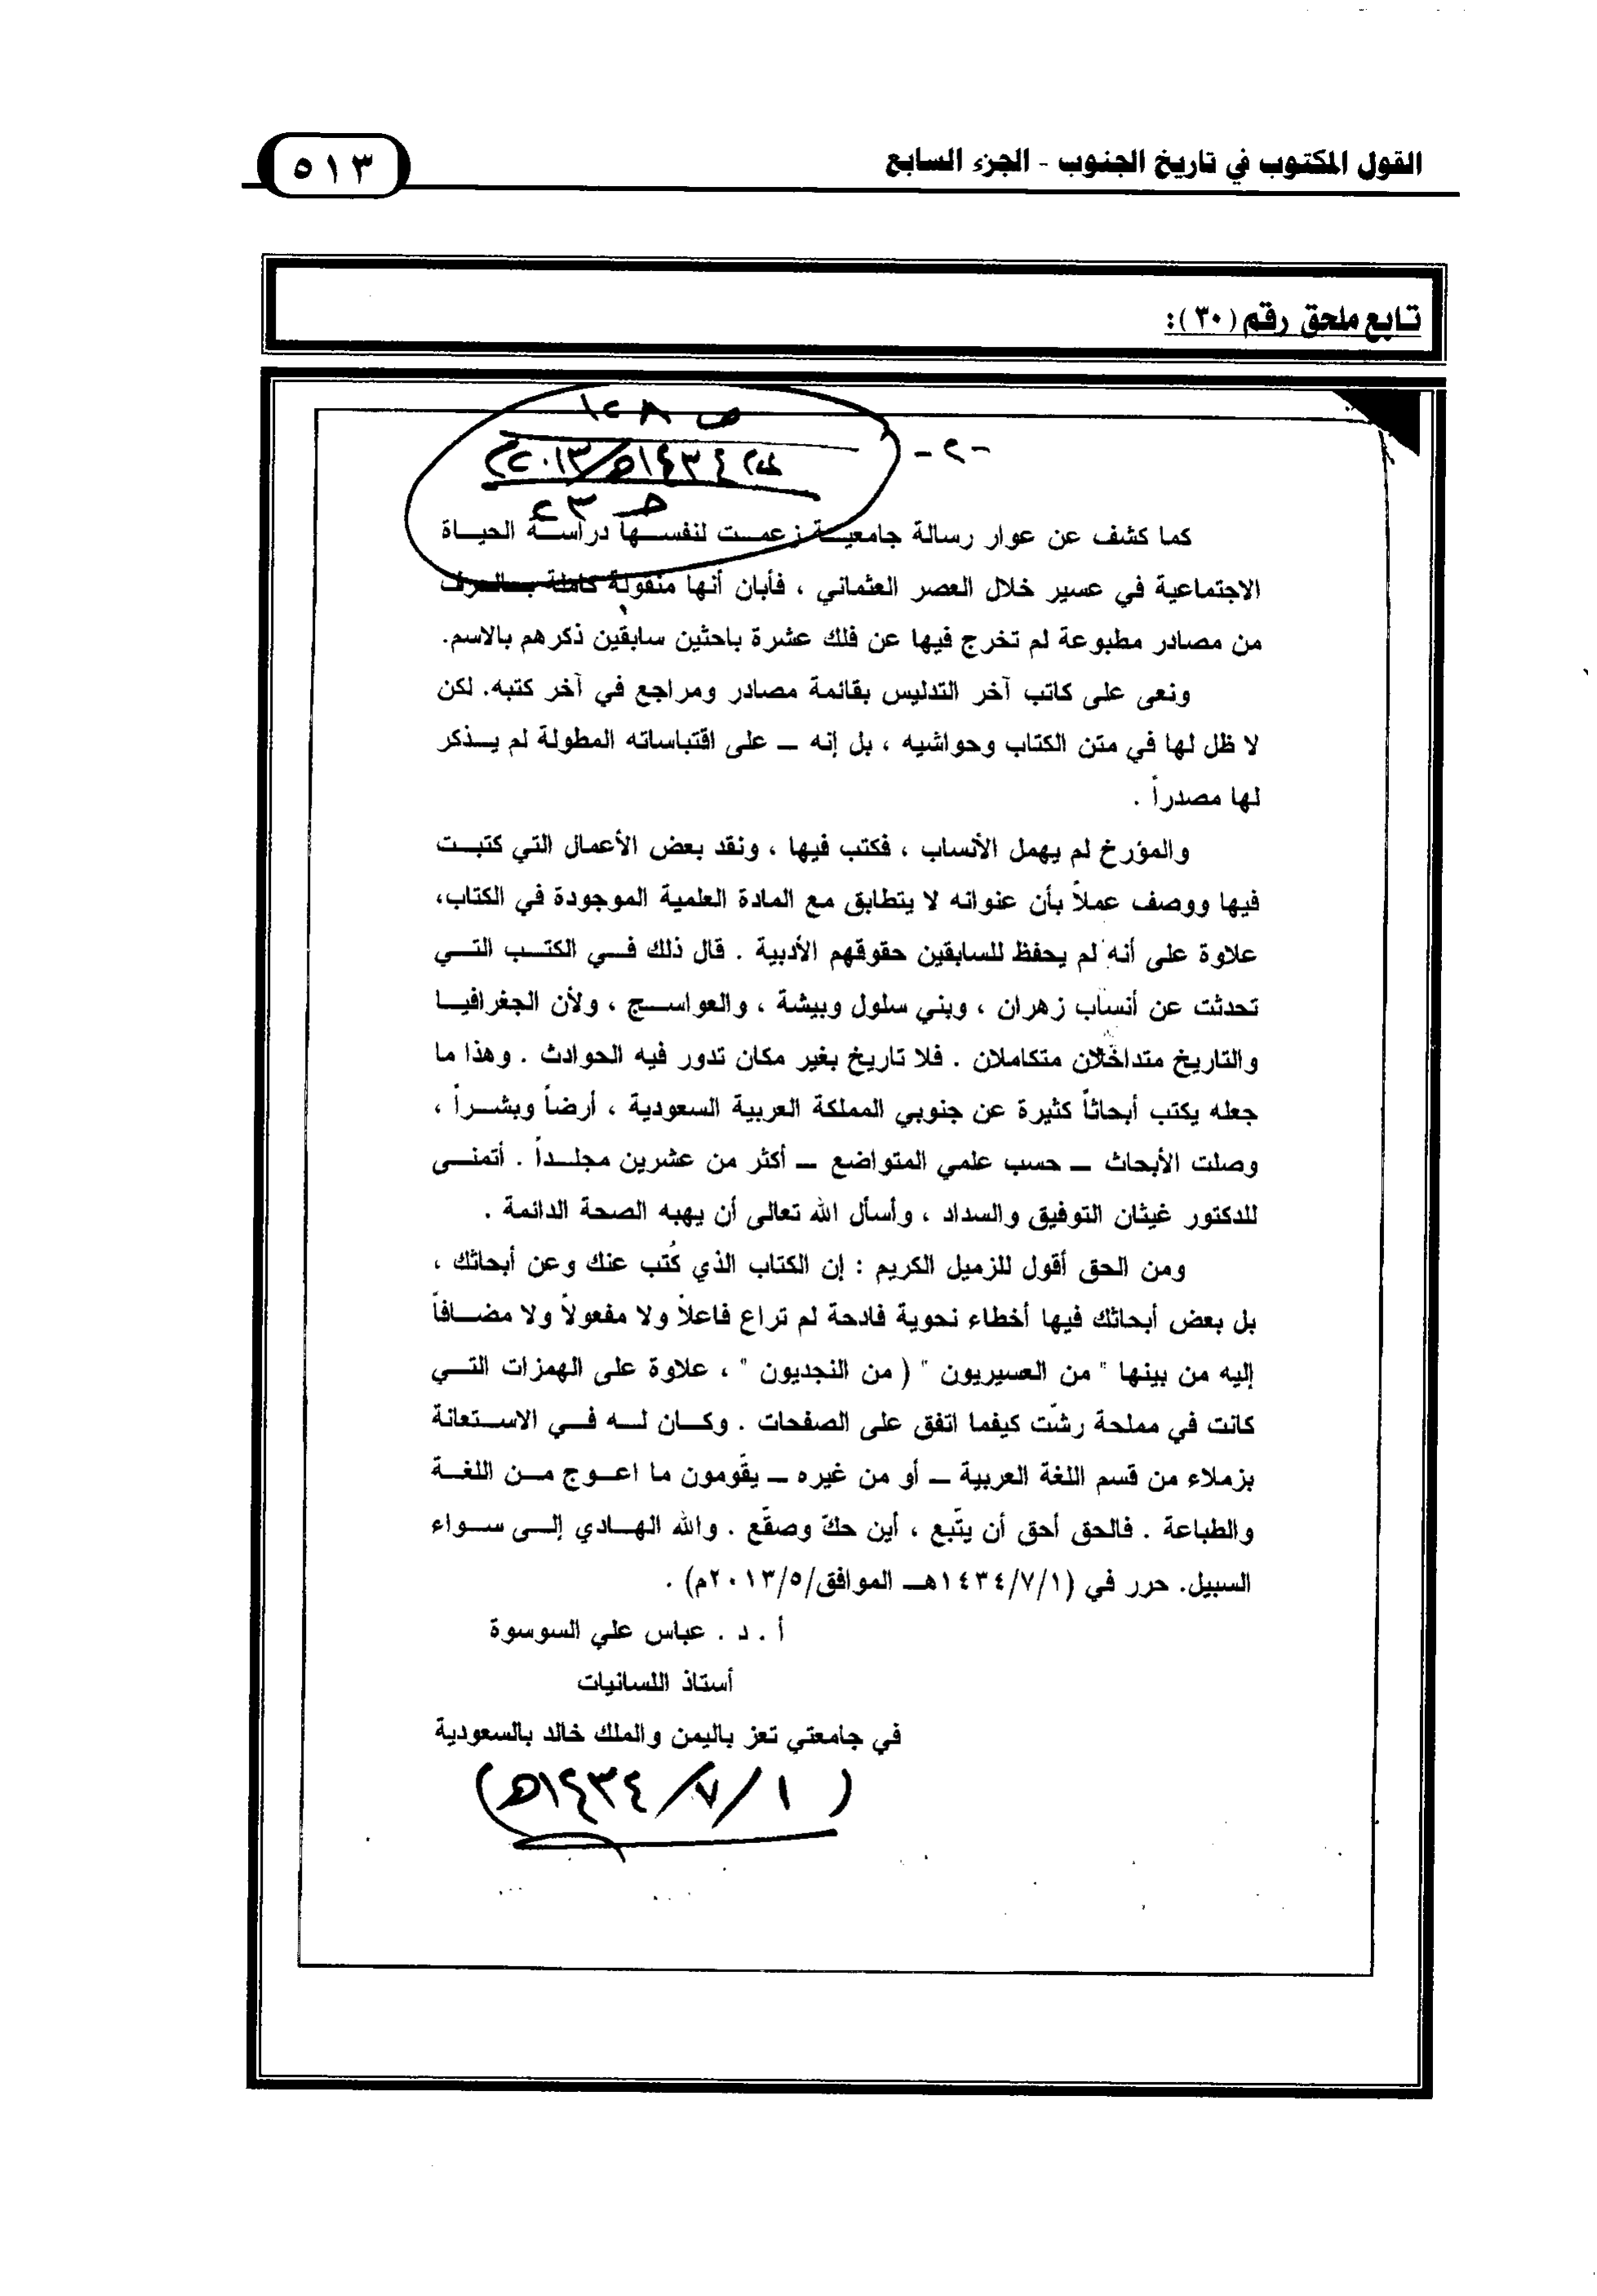 القول المكتوب في تاريخ الجنوب - الجزء السابع
٥١٣
تابع ملحق رقم (٣٠):
ص ١٢٨
١٤٣٤هـ/٢٠١٣م
جـ ٣
-٢-
كما كشف عن عوار رسالة جامعيـة زعمـت لنفسـها دراسـة الحيـاة
الاجتماعية في عسير خلال العصر العثماني ، فأبان أنها منقولة كاملة بـالحرف
من مصادر مطبوعة لم تخرج فيها عن فلك عشرة باحثين سابقين ذكرهم بالاسم.
ونعى على كاتب آخر التدليس بقائمة مصادر ومراجع في آخر كتبه. لكن
لا ظل لها في متن الكتاب وحواشيه ، بل إنه – على اقتباساته المطولة لم يـذكر
لها مصدراً .
والمؤرخ لم يهمل الأنساب ، فكتب فيها ، ونقد بعض الأعمال التي كتبـت
فيها ووصف عملاً بأن عنوانه لا يتطابق مع المادة العلمية الموجودة في الكتاب،
علاوة على أنه لم يحفظ للسابقين حقوقهم الأدبية . قال ذلك فـي الكتـب التـي
تحدثت عن أنساب زهران ، وبني سلول وبيشة ، والعواسـج ، ولأن الجغرافيـا
والتاريخ متداخلان متكاملان . فلا تاريخ بغير مكان تدور فيه الحوادث . وهذا ما
جعله يكتب أبحاثاً كثيرة عن جنوبي المملكة العربية السعودية ، أرضاً وبشـراً ،
وصلت الأبحاث – حسب علمي المتواضع – أكثر من عشرين مجلـداً . أتمنـى
للدكتور غيثان التوفيق والسداد ، وأسأل الله تعالى أن يهبه الصحة الدائمة .
ومن الحق أقول للزميل الكريم : إن الكتاب الذي كُتب عنك وعن أبحاثك ،
بل بعض أبحاثك فيها أخطاء نحوية فادحة لم تراع فاعلاً ولا مفعولاً ولا مضـافاً
إليه من بينها " من العسيريون " ( من النجديون " ، علاوة على الهمزات التـي
كانت في مملحة رشّت كيفما اتفق على الصفحات . وكـان لـه فـي الاسـتعانة
بزملاء من قسم اللغة العربية – أو من غيره – يقّومون ما اعـوج مـن اللغـة
والطباعة . فالحق أحق أن يتّبع ، أين حكّ وصقّع . والله الهـادي إلـى سـواء
السبيل. حرر في (١٤٣٤/٧/١هـ الموافق/٢٠١٣/٥م) .
أ . د . عباس علي السوسوة
أستاذ اللسانيات
في جامعتي تعز باليمن والملك خالد بالسعودية
(١/٧/١٤٣٤هـ)